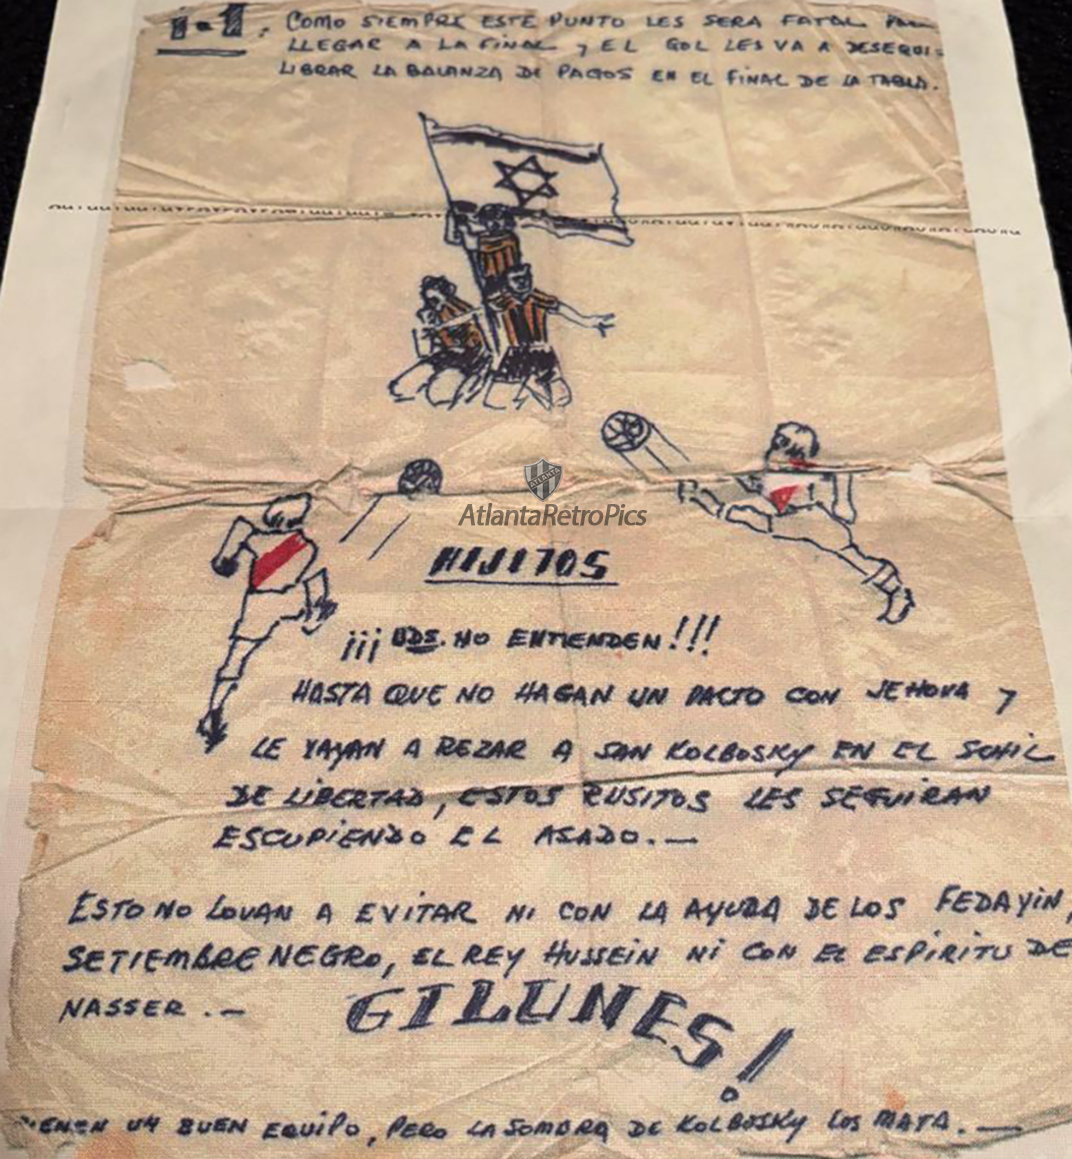 1-1. COMO SIEMPRE ESTE PUNTO LES SERA FATAL PARA
LLEGAR A LA FINAL Y EL GOL LES VA A DESEQUI-
LIBRAR LA BALANZA DE PAGOS EN EL FINAL DE LA TABLA.
ATLANTA
AtlantaRetroPics
HIJITOS
¡¡¡ UDS. NO ENTIENDEN!!!
HASTA QUE NO HAGAN UN PACTO CON JEHOVA Y
LE VAYAN A REZAR A SAN KOLBOSKY EN EL SCHIL
DE LIBERTAD, ESTOS RUSITOS LES SEGUIRAN
ESCUPIENDO EL ASADO.—
ESTO NO LO VAN A EVITAR NI CON LA AYUDA DE LOS FEDAYIN,
SETIEMBRE NEGRO, EL REY HUSSEIN NI CON EL ESPIRITU DE
NASSER.—
GILUNES!
TIENEN UN BUEN EQUIPO, PERO LA SOMBRA DE KOLBOSKY LOS MATA.—